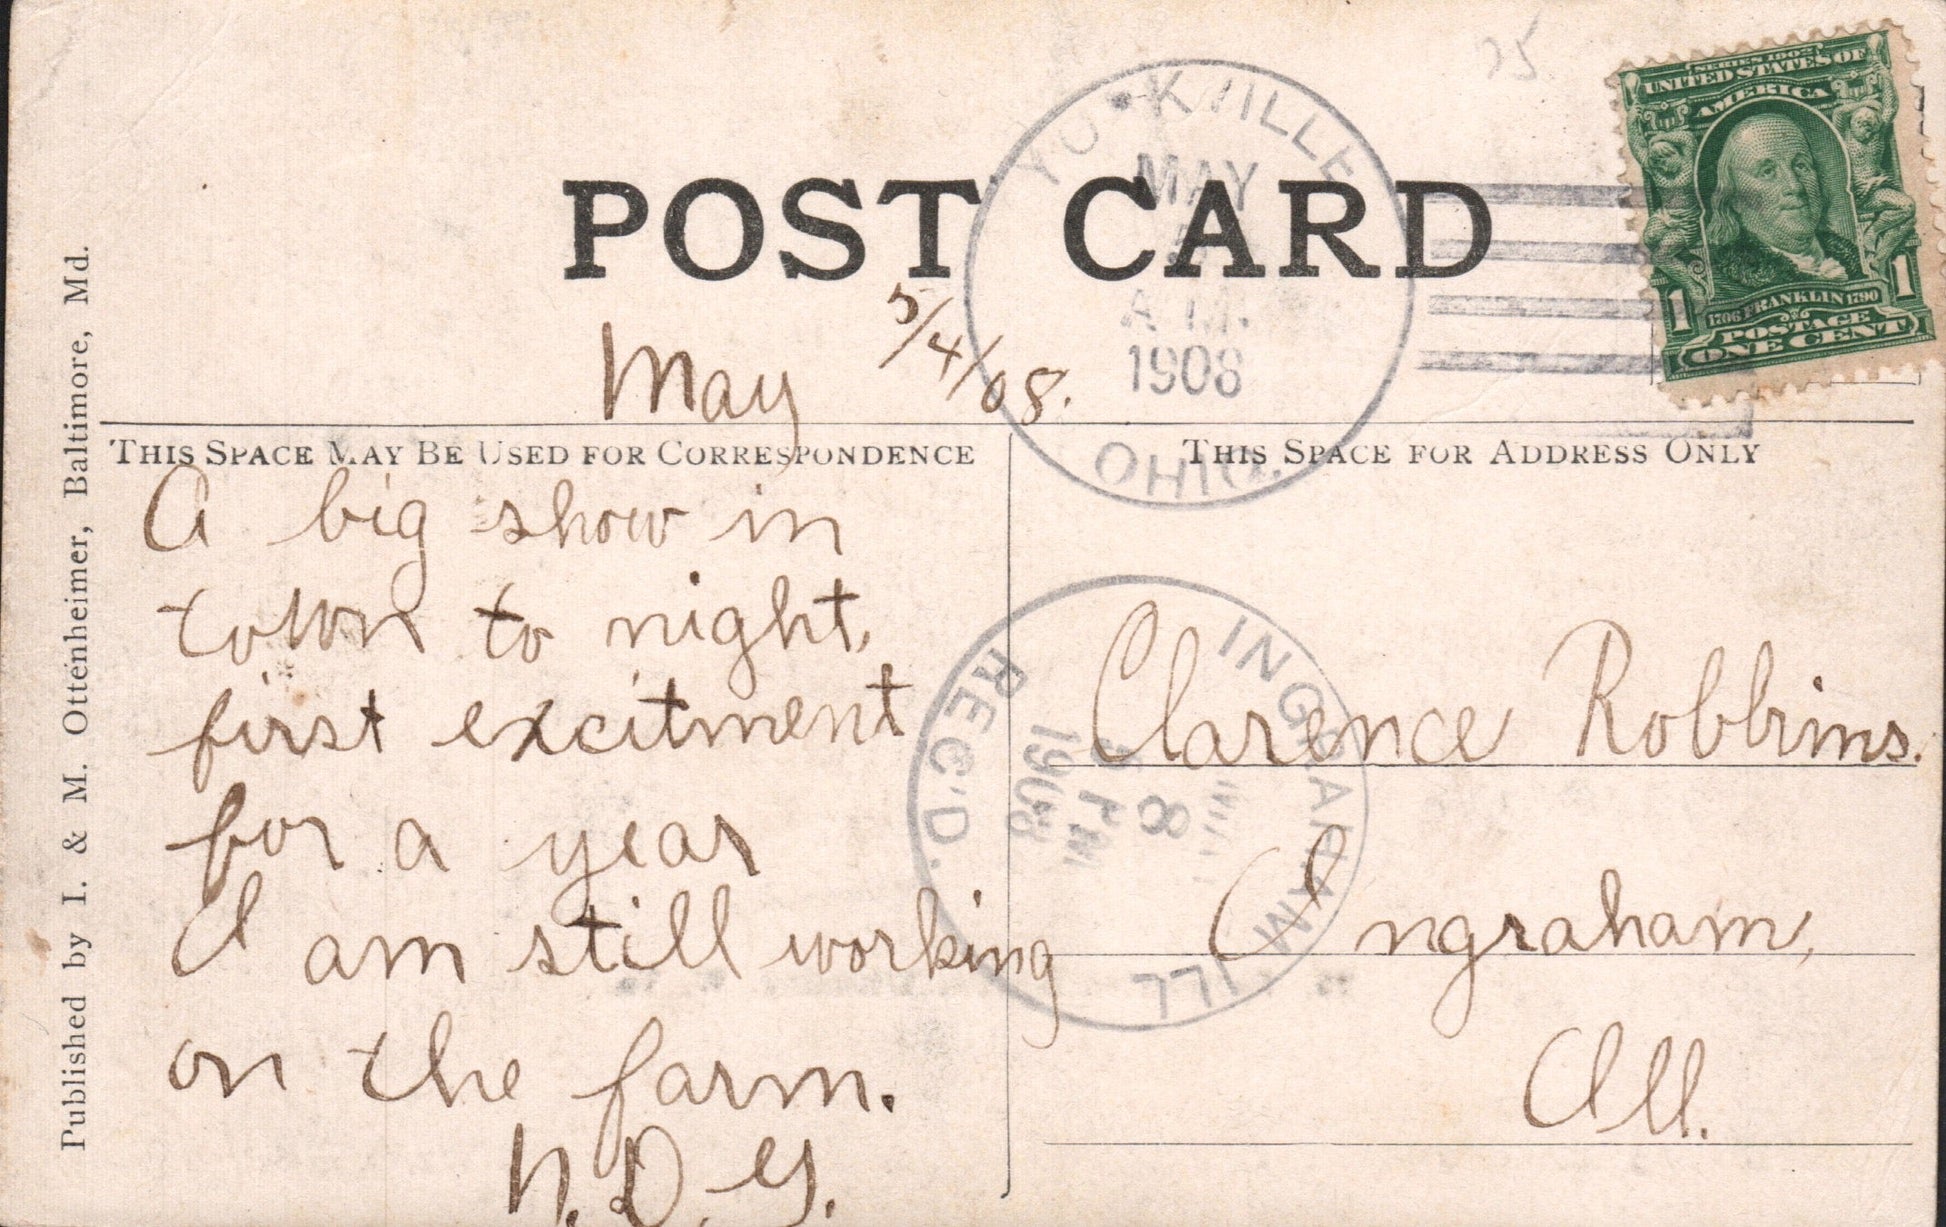 25
SERIES 1902
UNITED STATES OF
AMERICA
1706 FRANKLIN 1790
1 1
POSTAGE
ONE CENT
POST CARD
MAY
A.M.
1908
OHIO.
May 5/4/08.
THIS SPACE MAY BE USED FOR CORRESPONDENCE
THIS SPACE FOR ADDRESS ONLY
A big show in
town to night,
first excitment
for a year
I am still working
on the farm.
N.D.Y.
Clarence Robbins.
Ingraham,
Ill.
INGRAHAM ILL
8
PM
1908
REC'D.
Published by I. & M. Ottenheimer, Baltimore, Md.